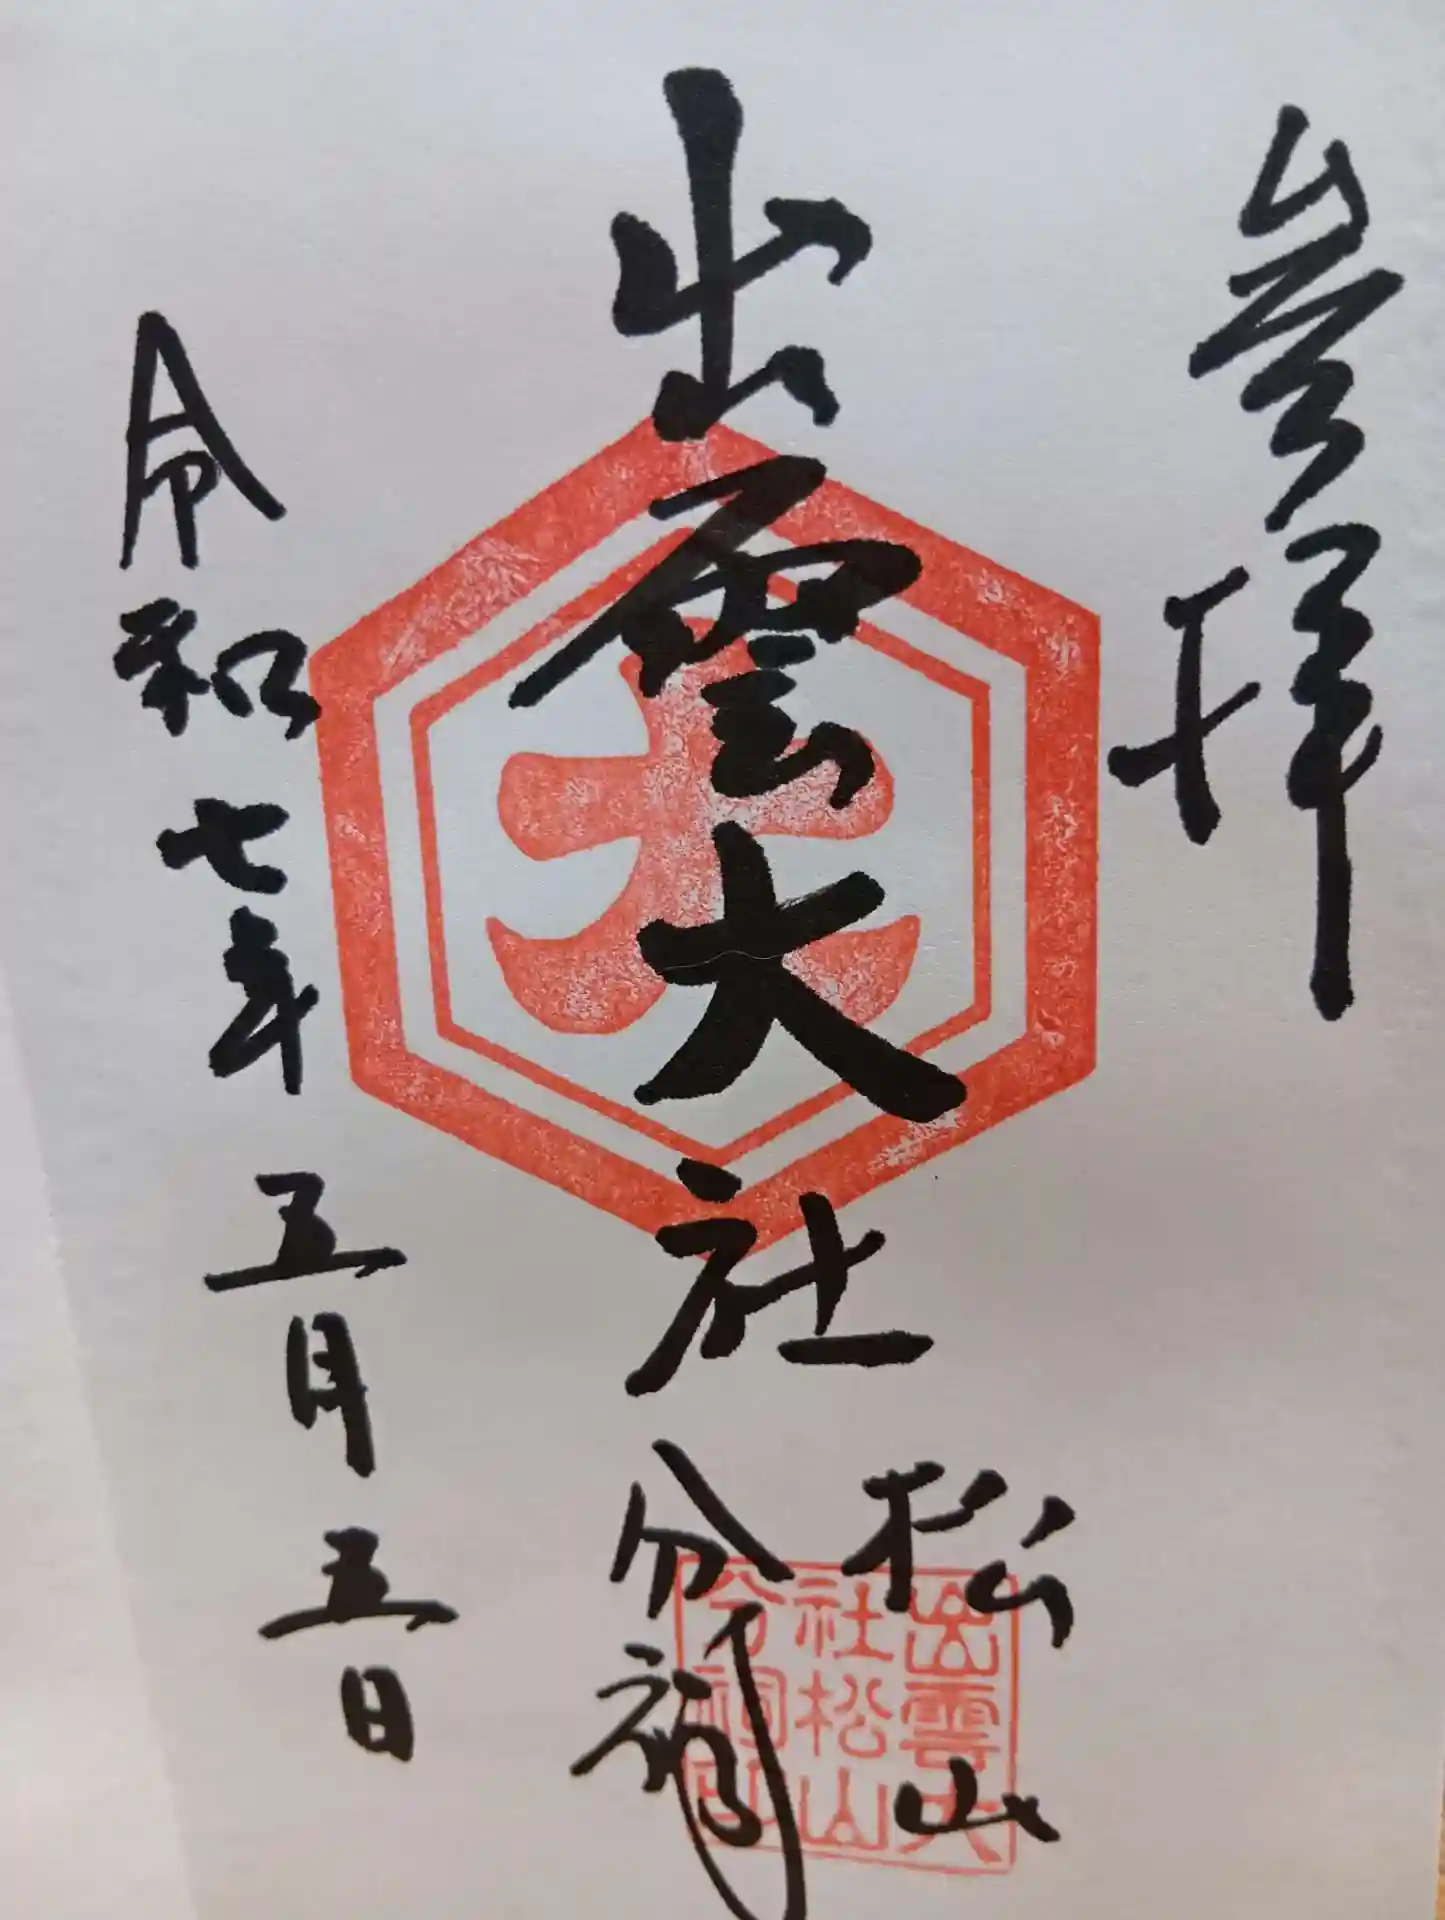 参拝
出雲大社
松山
分祠
令和七年五月五日
大
出雲大
社松山
分祠印